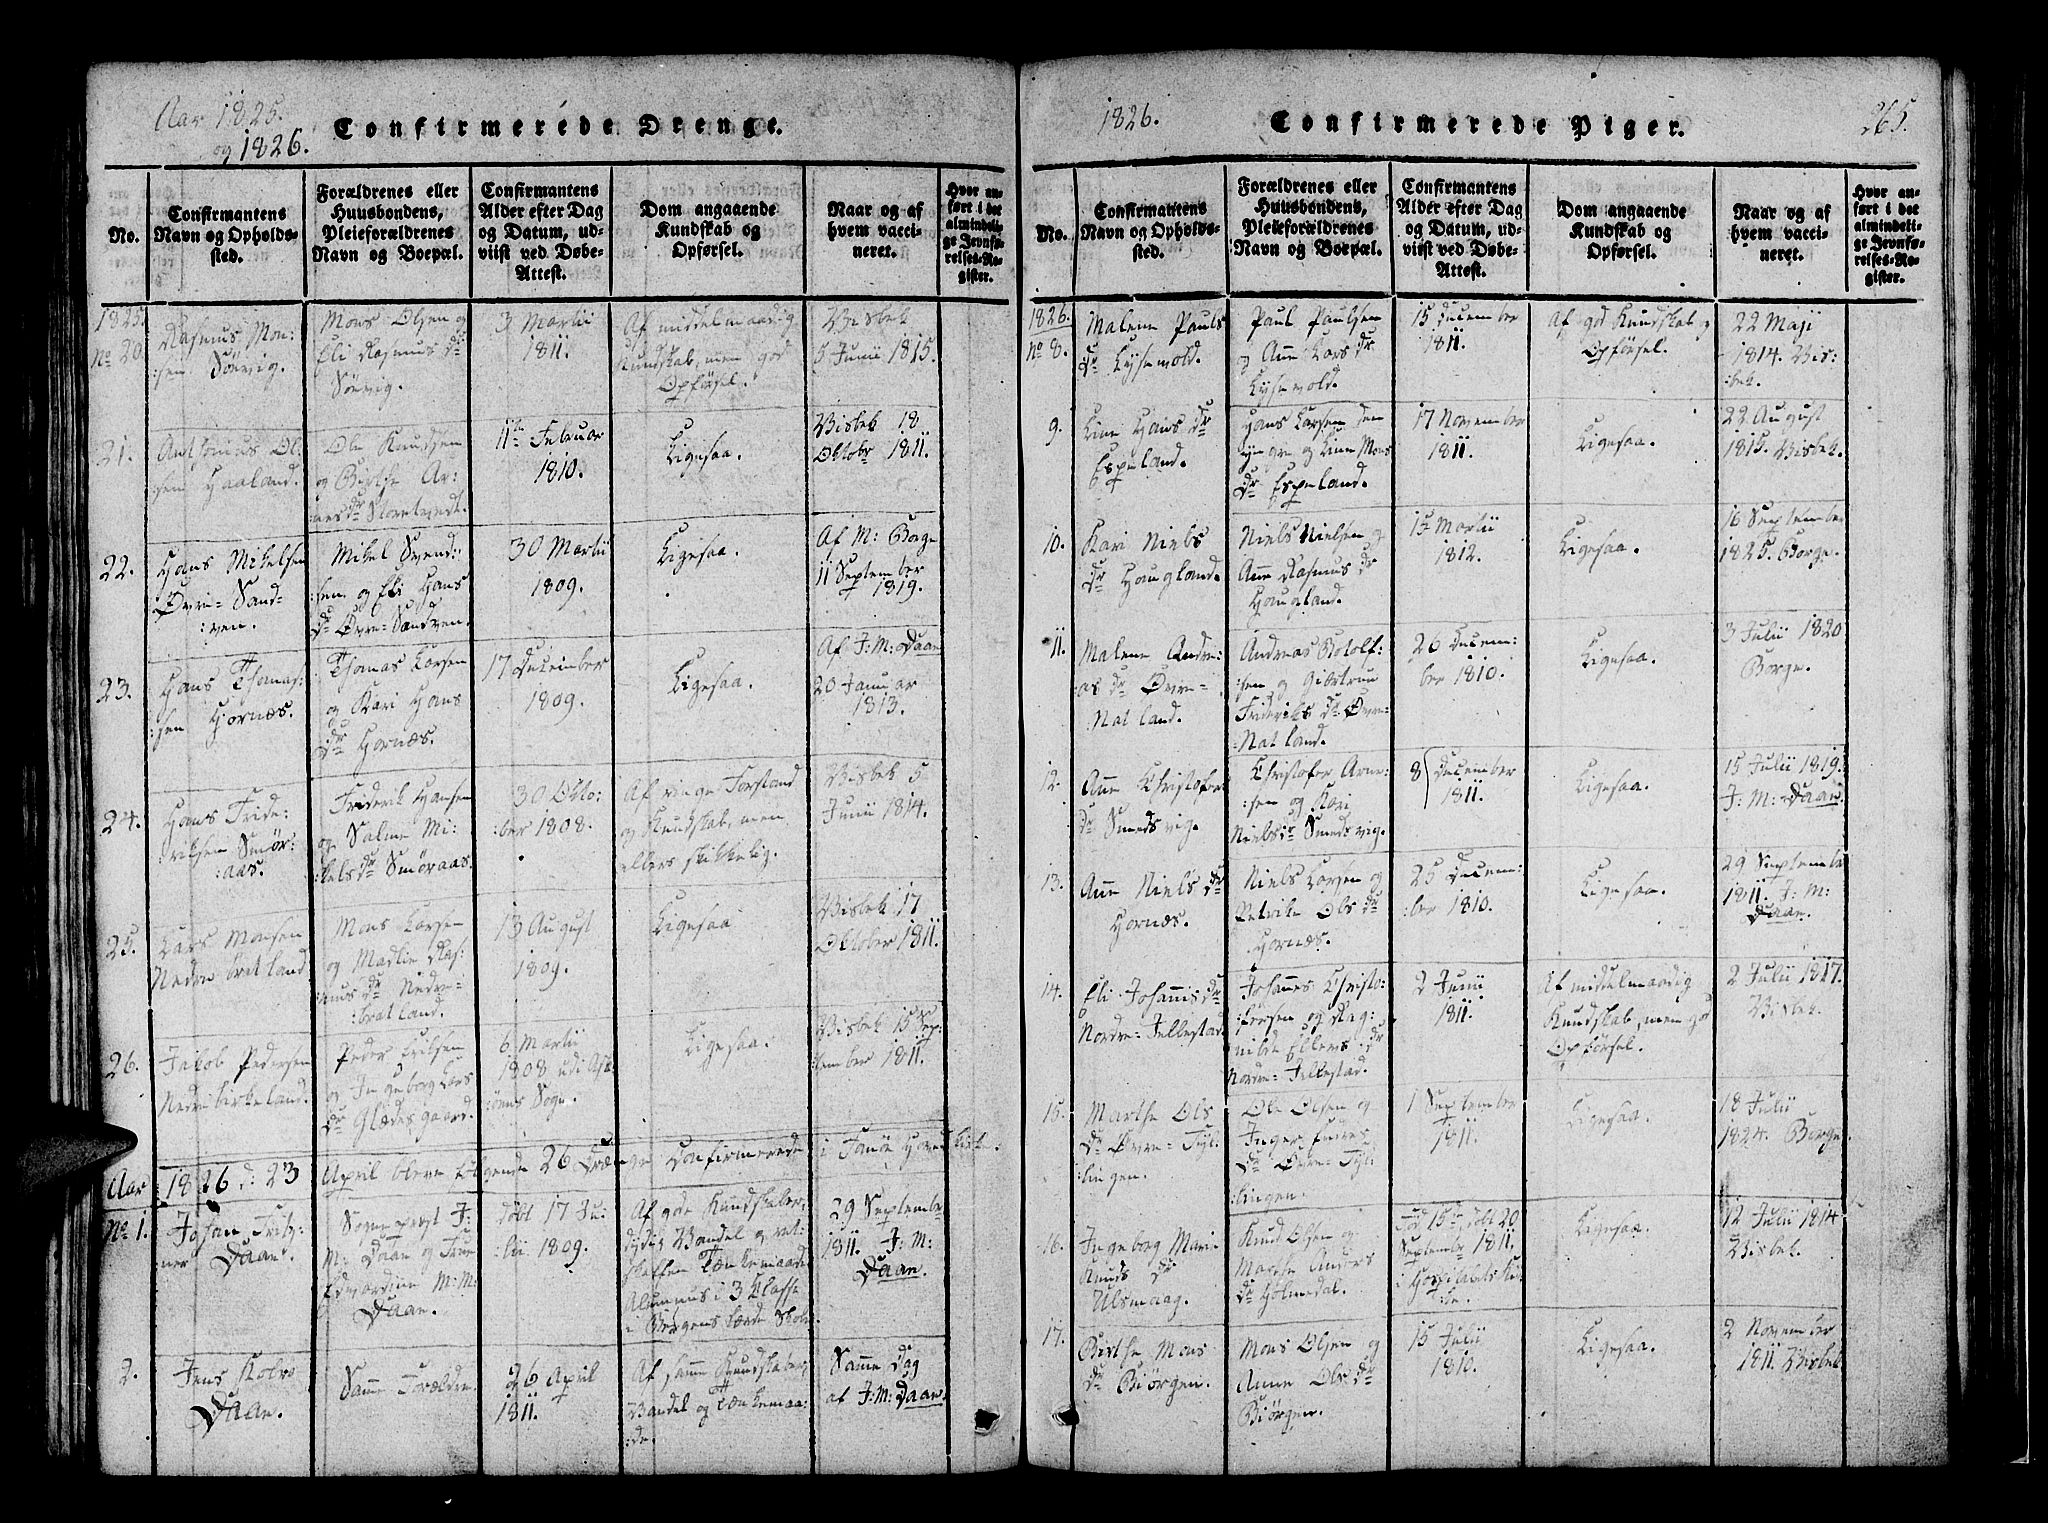 Aar 1825.
og 1826.
Confirmerede Drenge.
No.
Confirmantens
Navn og Opholds-
sted.
Forældrenes eller
Huusbondens,
Pleieforældrenes
Navn og Boepæl.
Confirmantens
Alder efter Dag
og Datum, ud-
viist ved Døbe-
Attest.
Dom angaaende
Kundskab og
Opførsel.
Naar og af
hvem vacci-
neret.
Hvor an-
ført i det
almindeli-
ge Jevnfø-
relses-Re-
gister.
1825.
No 20.
Rasmus Mon:
:sen Sørvig.
Mons Olsen og
Eli Rasmus Dr
Sørvig.
3 Martii
1811.
Af middelmaadig
Kundskab, men god
Opførsel.
Visbek
5 Junii 1815.
21.
Anthonius Ol:
:sen Haaland.
Ole Knudsen
og Birthe Ar:
:nes Dr
11te Februar
1810.
Ligesaa.
Visbek 18
Oktobr 1811.
22.
Hans Mikelsen
Øvre-Sand-
:ven.
Mikel Svend:
:sen og Eli Hans
Dr Øvre-Sandven.
30 Martii
1809.
Ligesaa.
Af M: Borge
11 September
1819.
23.
Hans Thomas:
:sen Hornæs.
Thomas Larsen
og Kari Hans
Dr Hornæs.
17 December
1809.
Ligesaa.
Af J: M: Daae
20 Januar
1813.
24.
Hans Fride:
:riksen Smør:
:aas.
Friderik Hansen
og Salme Mi:
:kels Dr Smøraas.
30 Okto:
:ber 1808.
Af ringe Forstand
og Kundskab, men
ellers skikkelig.
Visbek 5
Junii 1814.
25.
Lars Monsen
Nedre bratland
Mons Larsen
og Madlie Ras:
:mus Dr Nedre-
:bratland.
13 August
1809.
Ligesaa
Visbek 17
Oktober 1811.
26.
Jakob Pedersen
Nedre birkeland.
Peder Eriksen
og Ingeborg Lars
Dr Glædesgaard.
6 Martii
1808 udi
Sogn.
Ligesaa.
Visbek 15 Sep:
:tember 1811.
Aar 1826 d: 23 April bleve følgende 26 Drænge Confirmerede i Fanøe Hoved Kirke.
No 1.
Johan Fritz:
ner Daae.
Sogneprest J:
M: Daae og Frue
Edvardine M: M:
Daae.
døbt 17 Ju:
:lii 1809.
Af gode Kundskaber,
dydig Vandel og ret:
skaffen Tænkemaade
Alumnus i 3 Classe
i Bergens lærde Skole.
29 Septembr
1811. J: M:
Daae.
2.
Jens Kobro
Daae.
Samme Forældre.
26 April
1811.
Af samme Kundskaber,
Vandel og Tænkemaa:
:de.
Samme Dag
af J: M: Daae.
1826.
Confirmerede Piger.
265.
No.
Confirmantens
Navn og Opholds-
sted.
Forældrenes eller
Huusbondens,
Pleieforældrenes
Navn og Boepæl.
Confirmantens
Alder efter Dag
og Datum, ud-
viist ved Døbe-
Attest.
Dom angaaende
Kundskab og
Opførsel.
Naar og af
hvem vacci-
neret.
Hvor an-
ført i det
almindeli-
ge Jevnfø-
relses-Re-
gister.
1826.
No 8.
Malene Pauls
Dr Lysevold.
Paul Paulsen
og Anne Lars Dr
Lysevold.
15 December
1811.
Af god Kundskab og
Opførsel.
22 Maji
1814. Vis:
:bek.
9.
Line Hans Dr
Espeland.
Hans Larsen den
yngre og Line Mons
Dr Espeland.
17 November
1811.
Ligesaa.
22 August
1815. Visbek.
10.
Kari Niels
Dr Haugland.
Niels Nielsen og
Anne Rasmus Dr
Haugland.
15 Martii
1812.
Ligesaa.
16 September
1825. Borge.
11.
Malene Andre:
:as Dr Øvre-
Natland.
Andreas Botolf:
:sen og Giærtrue
Frideriks Dr Øvre-
:Natland.
26 Decem:
ber 1810.
Ligesaa.
3 Julii 1820
Borge.
12.
Anne Christofer
Dr Smedsvig.
Christofer Arne:
:sen og Kari
Niels Dr Smedsvig.
8 December
1811.
Ligesaa.
15 Julii 1819.
J: M: Daae.
13.
Anne Niels Dr
Hornæs.
Niels Larsen og
Petrike Ols Dr
Hornæs.
25 Decem:
:ber 1810.
Ligesaa.
29 Septembe
1811. J: M:
Daae.
14.
Eli Johannis Dr
Nordre-Jellestad
Johannes Christo:
:fersen og Rag:
:nilde Ellers Dr
Nordre-Jellestad.
2 Junii
1811.
Af middelmaadig
Kundskab, men god
Opførsel.
2 Julii 1817.
Visbek.
15.
Marthe Ols
Dr Øvre-Tyl:
:lingen.
Ole Olsen og
Inger
Dr Øvre-Tyl:
:lingen.
1 September
1811.
Ligesaa.
18 Julii
1824. Borge.
16.
Ingeborg Marie
Knuds Dr
Ulsmaag.
Knud Olsen og
Marthe Anders
Dr Holmedal.
Fød 15de, døbt 20
Septembr 1811.
i Hospitalets Kir
:ke.
Ligesaa
12 Julii 1814
Visbek.
17.
Birthe Mons
Dr Biørgen.
Mons Olsen og
Anne Ols Dr
Biørgen.
15 Julii
1810.
Ligesaa.
2 November
1811. Visbek